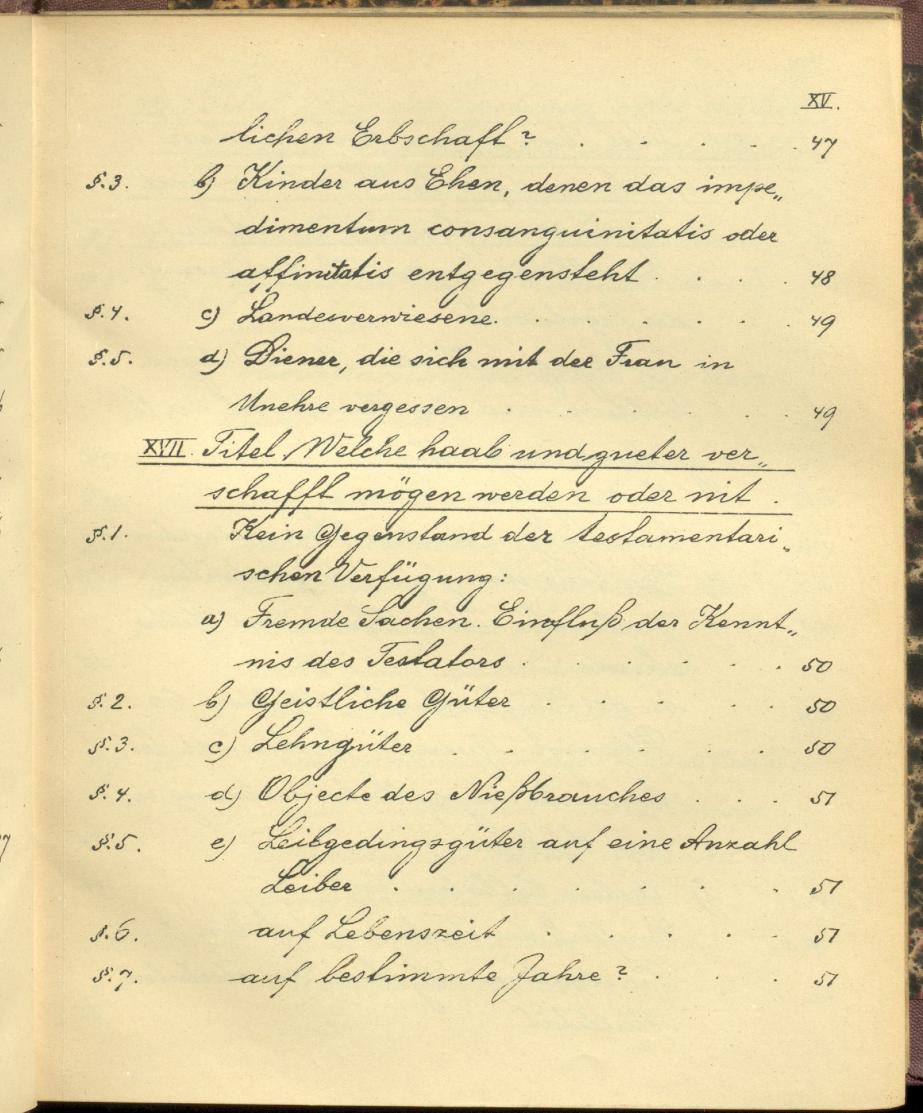 XV.
lichen Erbschaft? . . . . . 47
§.3. b) Kinder aus Ehen, denen das impe„
dimentum consanguinitatis oder
affinitatis entgegensteht . . . . 48
§.4. c) Landesverwiesene. . . . . . 49
§.5. d) Diener, die sich mit der Frau in
Unehre vergessen . . . . . . 49
XVII. Titel, Welche haab und gueter ver„
schafft mögen werden oder nit .
§.1. Kein Gegenstand der testamentari„
schen Verfügung:
a) Fremde Sachen. Einfluß der Kennt„
nis des Testators . . . . . . 50
§.2. b) Geistliche Güter . . . . . 50
§.3. c) Lehngüter . . . . . . . 50
§.4. d) Objecte des Nießbrauches . . . 51
§.5. e) Leibgedingsgüter auf eine Anzahl
Leiber . . . . . . . 51
§.6. auf Lebenszeit . . . . . 51
§.7. auf bestimmte Jahre? . . . 51